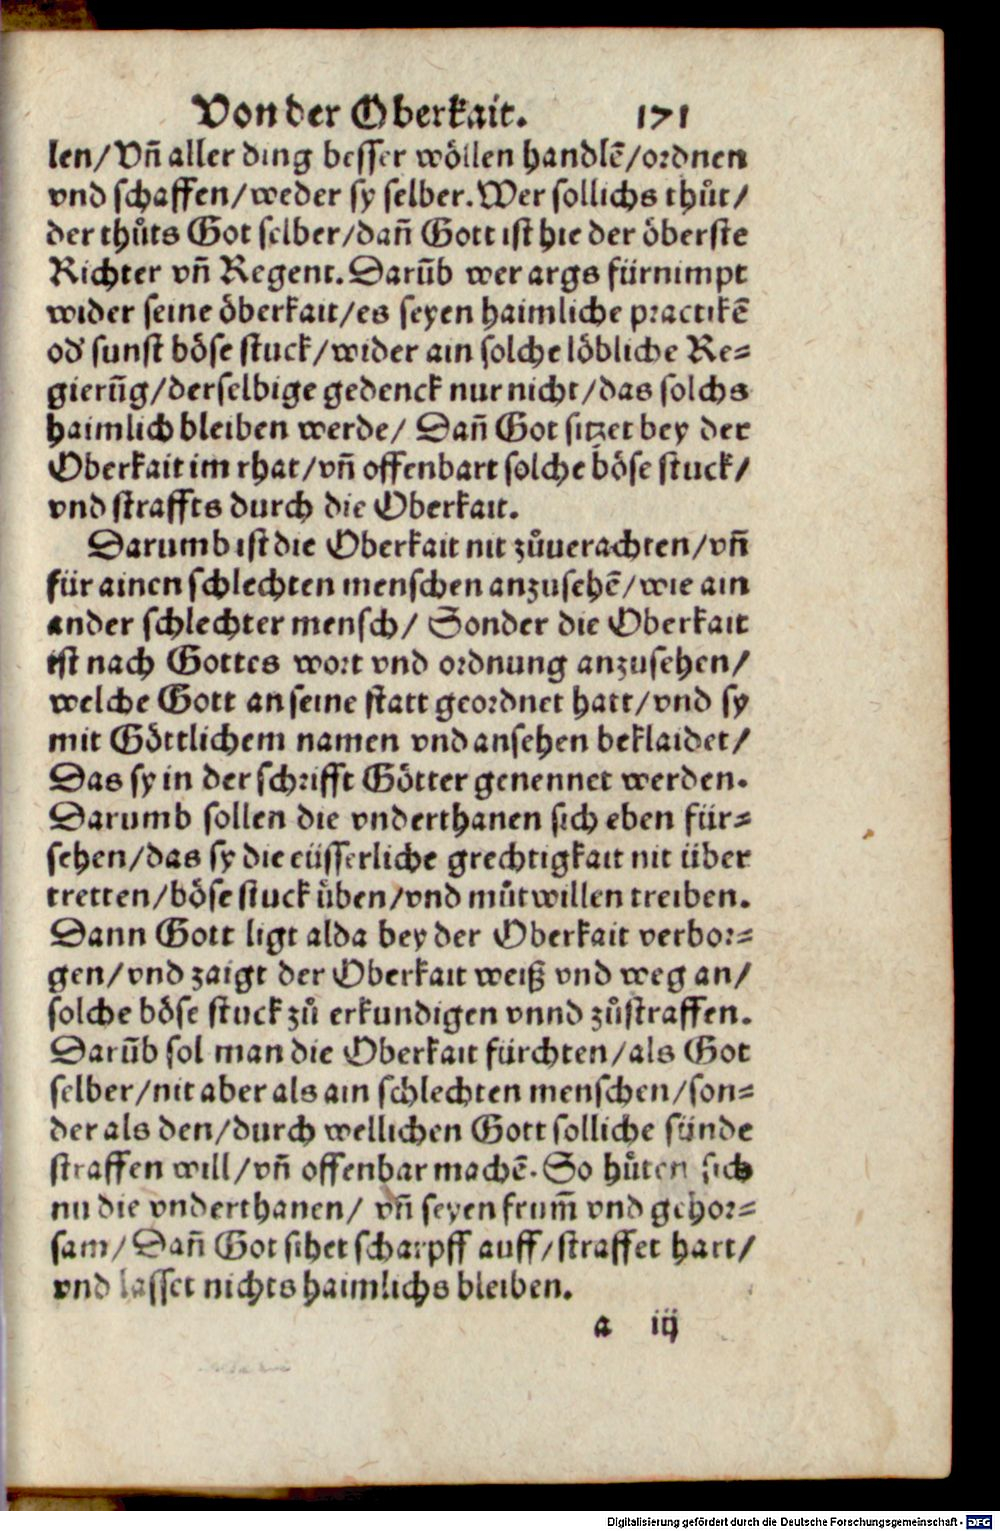 Von der Oberkait. 171
len/Vñ aller ding besser wöllen handlē/ordnen
vnd schaffen/weder sy selber. Wer sollichs thůt/
der thůts Got selber/dañ Gott ist hie der öberste
Richter vñ Regent. Darūb wer args fürnimpt
wider seine öberkait/es seyen haimliche practikē
od' sunst böse stuck/wider ain solche löbliche Re=
gierūg/derselbige gedenck nur nicht/das solchs
haimlich bleiben werde/ Dañ Got sitzet bey der
Oberkait im rhat/vñ offenbart solche böse stuck/
vnd straffts durch die Oberkait.
Darumb ist die Oberkait nit zůuerachten/vñ
für ainen schlechten menschen anzusehē/wie ain
ander schlechter mensch/ Sonder die Oberkait
ist nach Gottes wort vnd ordnung anzusehen/
welche Gott an seine statt geordnet hatt/vnd sy
mit Göttlichem namen vnd ansehen beklaidet/
Das sy in der schrifft Götter genennet werden.
Darumb sollen die vnderthanen sich eben für=
sehen/das sy die eüsserliche grechtigkait nit über
tretten/böse stuck üben/vnd můtwillen treiben.
Dann Gott ligt alda bey der Oberkait verbor=
gen/vnd zaigt der Oberkait weiß vnd weg an/
solche böse stuck zů erkundigen vnnd zůstraffen.
Darūb sol man die Oberkait fürchten/als Got
selber/nit aber als ain schlechten menschen/son=
der als den/durch wellichen Gott solliche sünde
straffen will/vñ offenbar machē. So hůten sich
nu die vnderthanen/ vñ seyen frum̄ vnd gehor=
sam/ Dañ Got sihet scharpff auff/straffet hart/
vnd lasset nichts haimlichs bleiben.
a iij
Digitalisierung gefördert durch die Deutsche Forschungsgemeinschaft - DFG